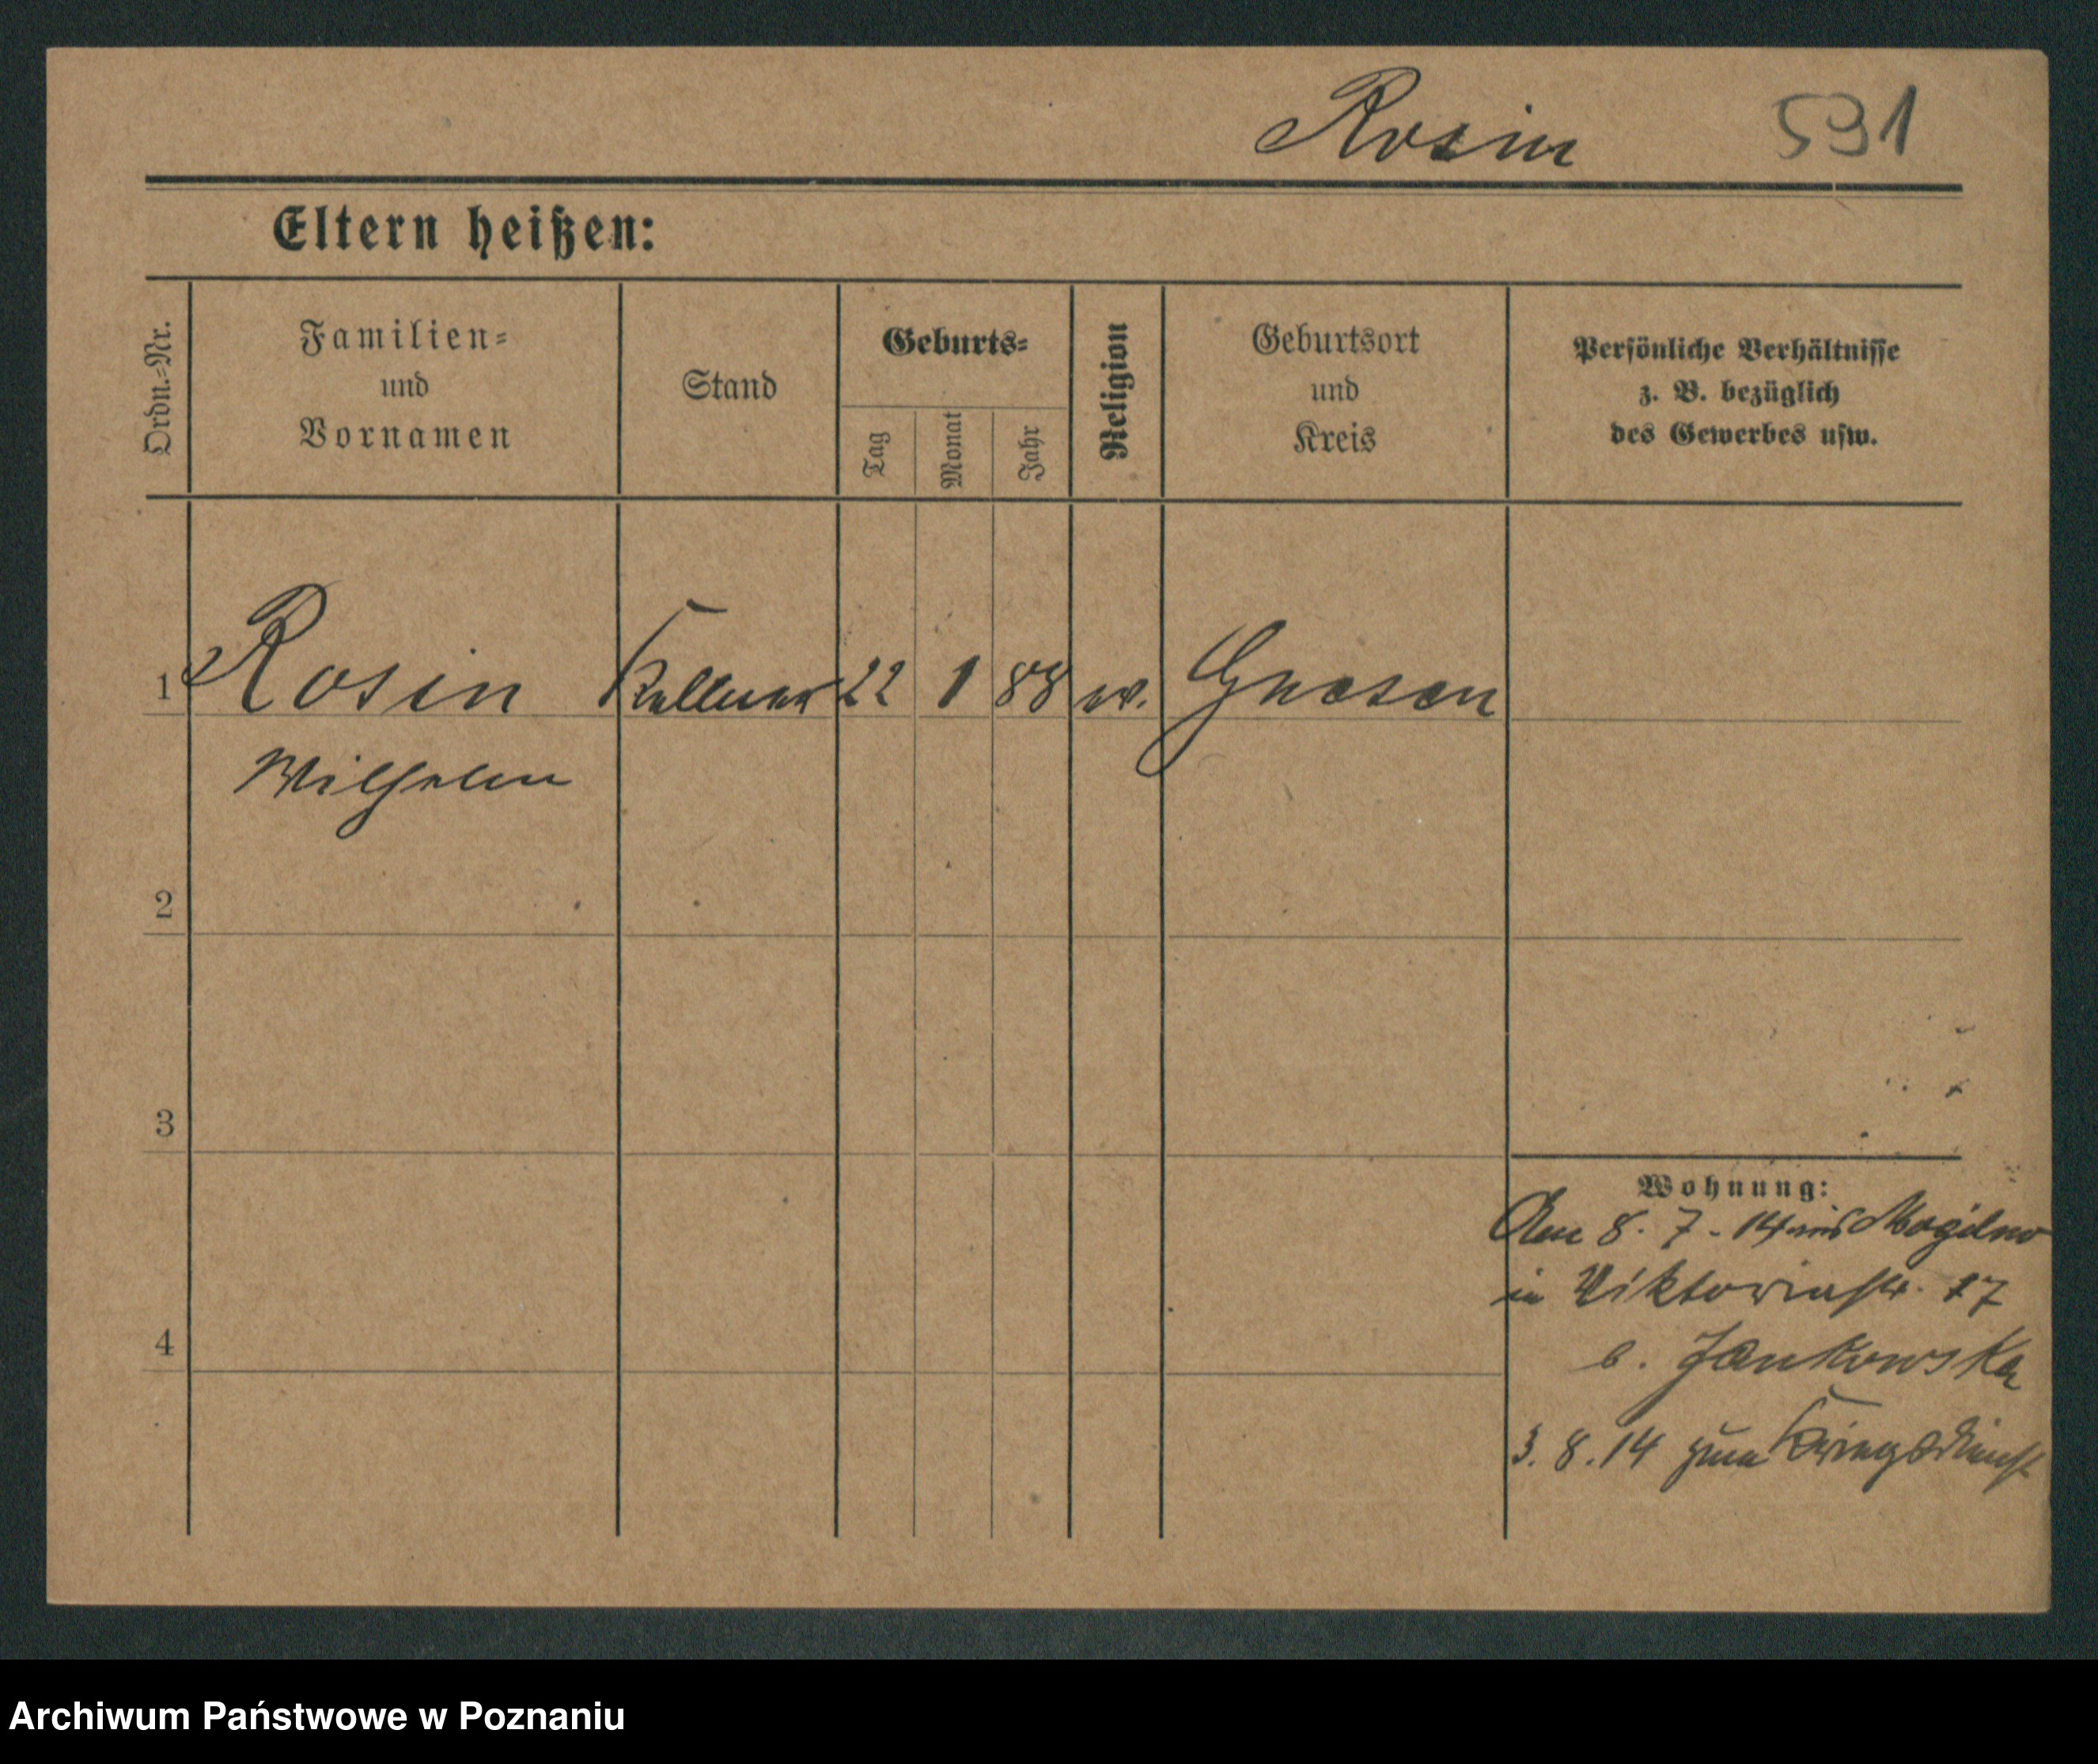 Rosin 591
Eltern heißen:
Ordn.=Nr.
Familien=
und
Vornamen
Stand
Geburts=
Tag
Monat
Jahr
Religion
Geburtsort
und
Kreis
Persönliche Verhältnisse
z. B. bezüglich
des Gewerbes usw.
1 Rosin Kellner 22 1 88 ev. Gnesen
Wilhelm
2
3
4
Wohnung:
Am 8. 7. 14 aus Mogilno
in Viktoriastr. 17
b. Jankowska
3. 8. 14 zum Kriegsdienst
Archiwum Państwowe w Poznaniu